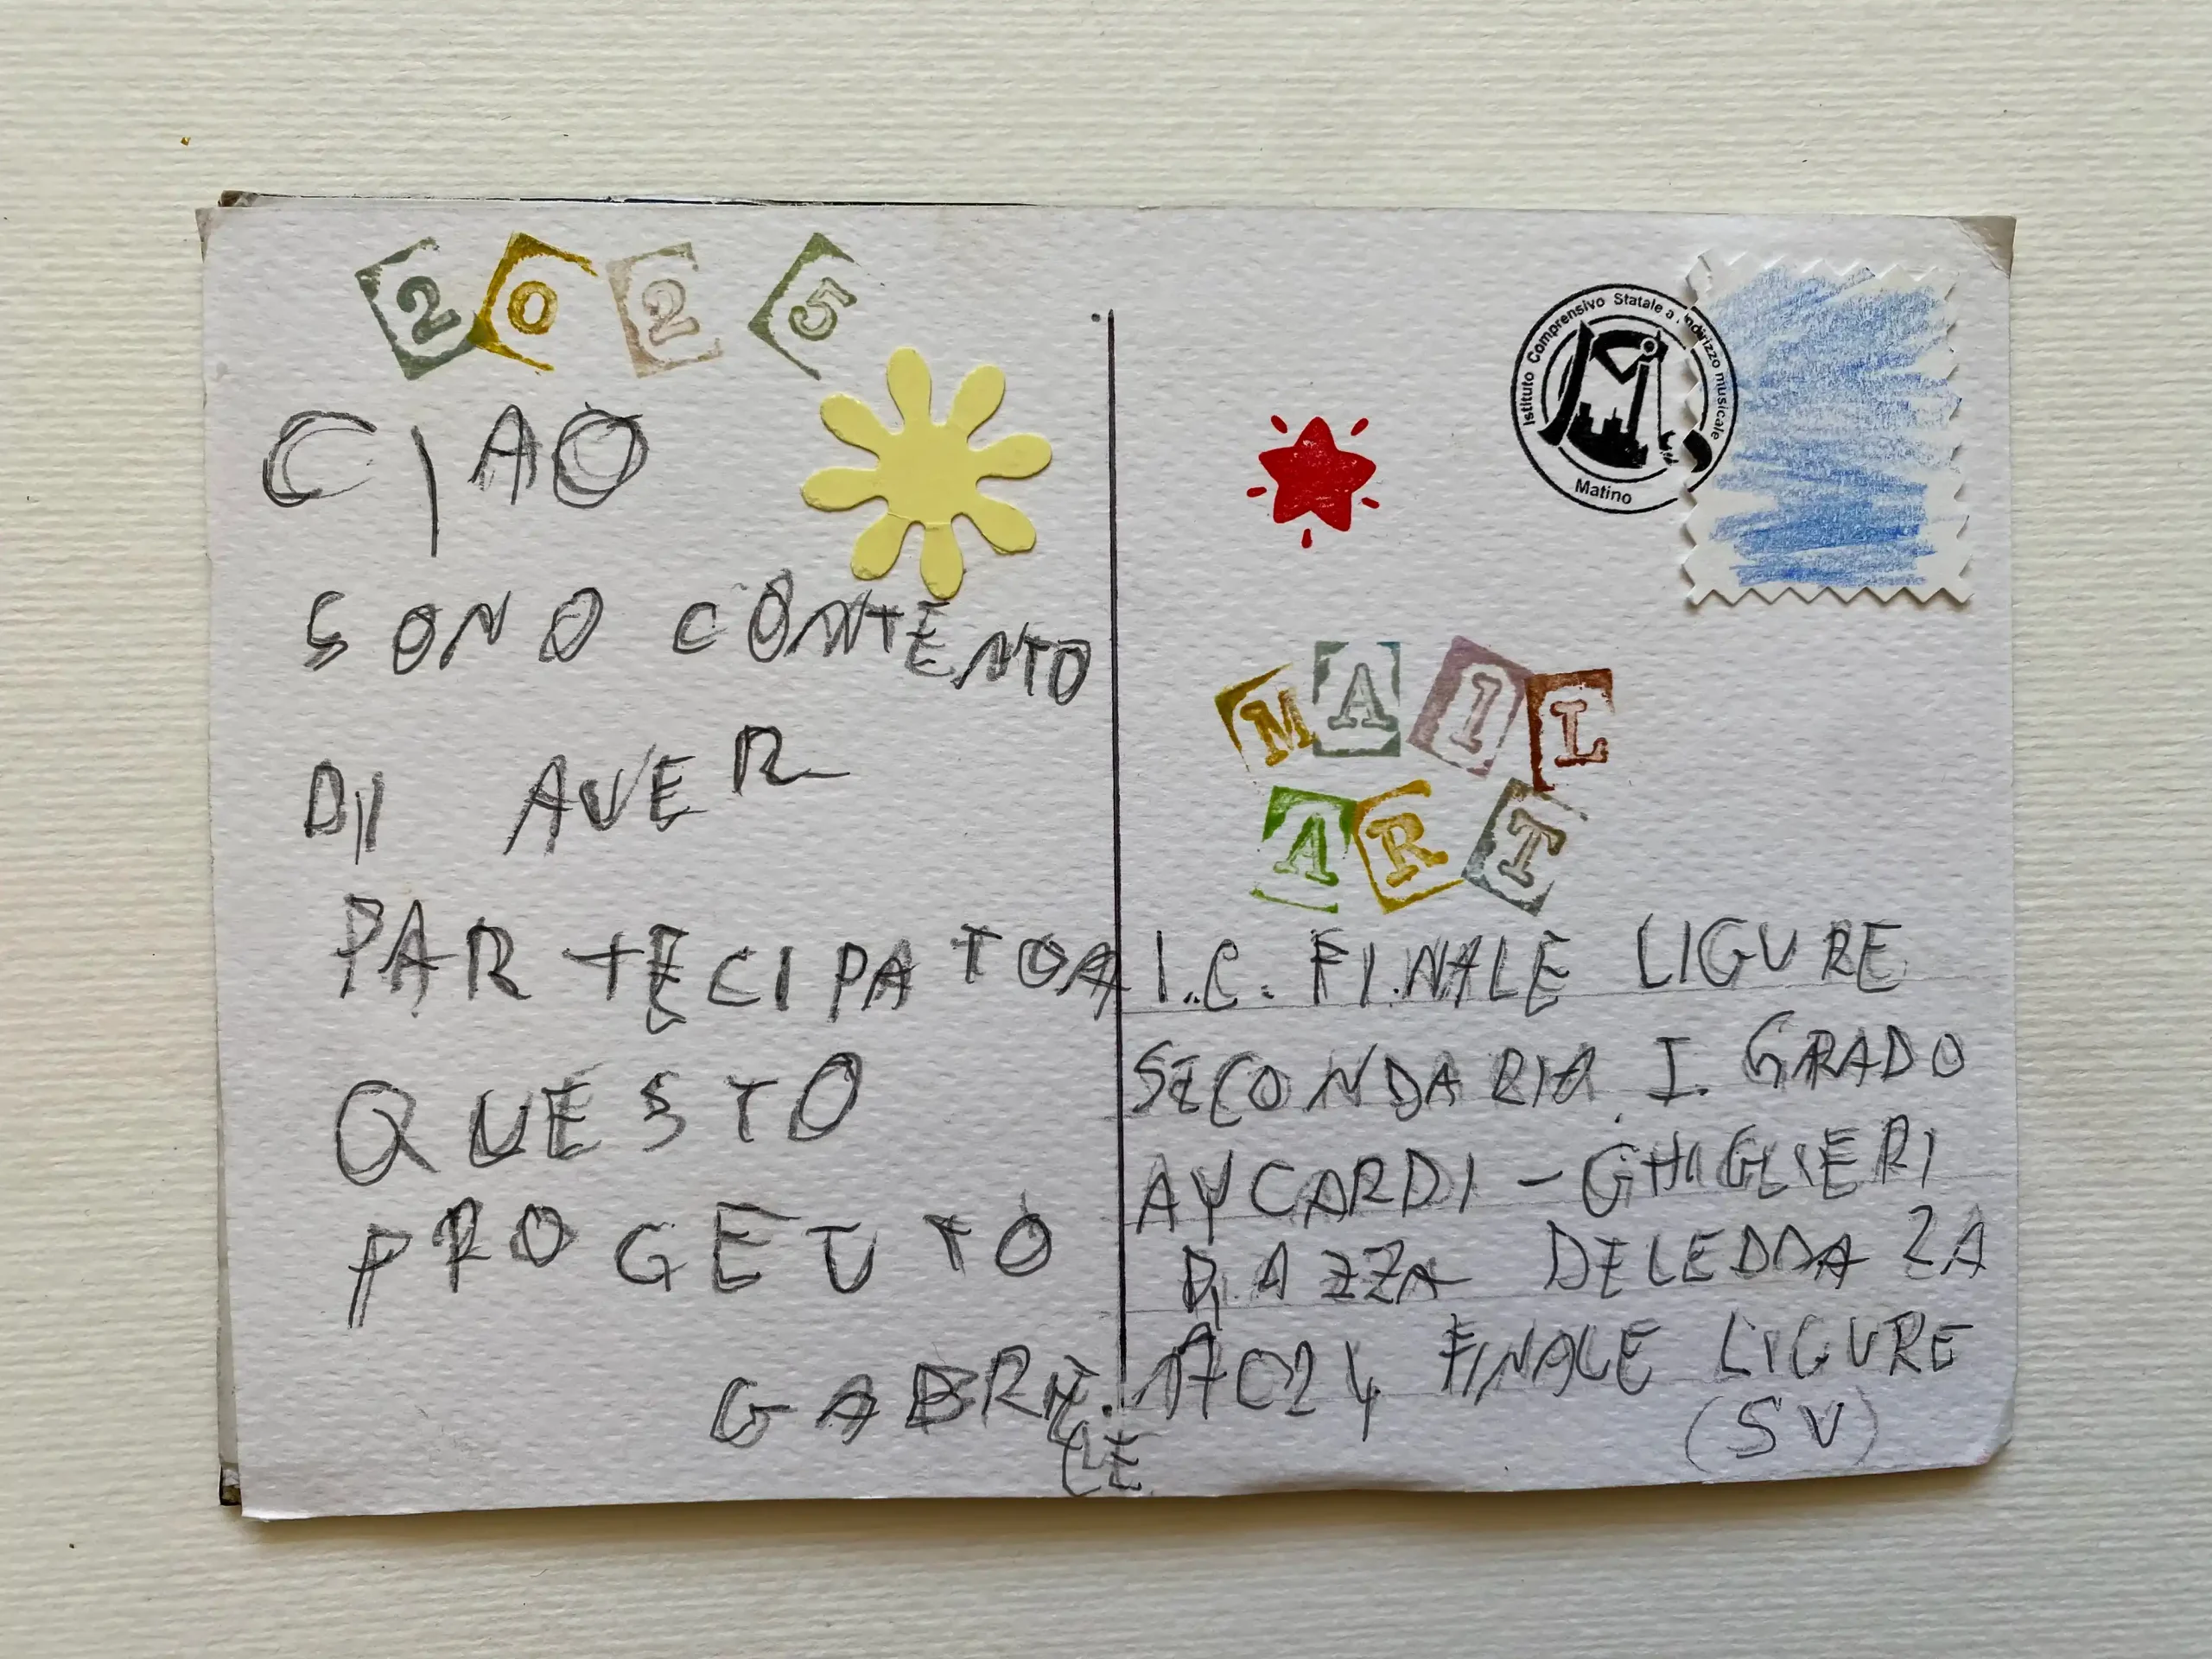 2025
CIAO
SONO CONTENTO
DI AVER
PARTECIPATO A
QUESTO
PROGETTO
GABRIELE
Istituto Comprensivo Statale a indirizzo musicale
Matino
MAIL
ART
I.C. FINALE LIGURE
SECONDARIA I GRADO
AYCARDI - GHIGLIERI
PIAZZA DELEDDA 2A
17024 FINALE LIGURE
(SV)